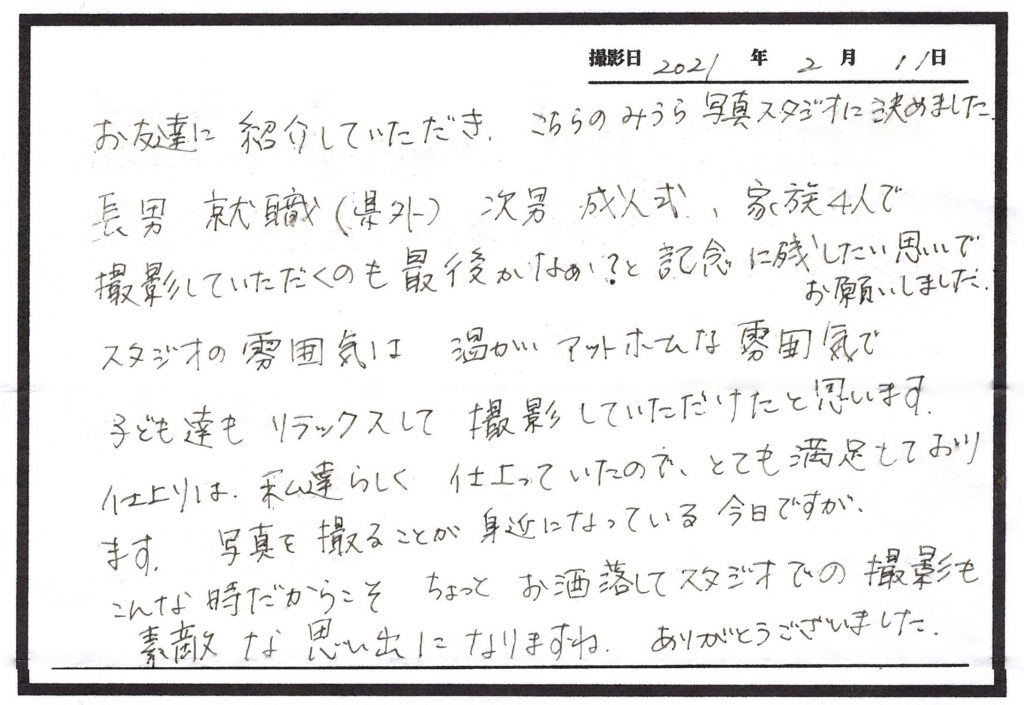 撮影日 2021 年 2 月 11日
お友達に 紹介していただき、こちらの みうら 写真スタジオに決めました。
長男 就職(県外) 次男 成人式、家族4人で
撮影していただくのも最後かなぁ?と記念に残したい思いで
お願いしました。
スタジオの雰囲気は 温かい アットホームな雰囲気で
子ども達も リラックスして 撮影していただけたと思います。
仕上りは、私達らしく 仕上っていたので、とても満足しており
ます。 写真を撮ることが身近になっている今日ですが、
こんな時だからこそ ちょっと お洒落してスタジオでの撮影も
素敵な思い出になりますね。 ありがとうございました。